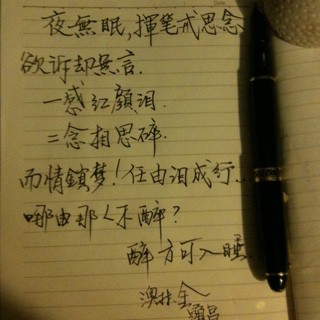 夜無眠,揮笔戒思念
欲诉却無言.
一感红顏泪.
二念相思碎.
而情鎖梦!任由泪成行...
哪由那人不醉?
醉方可入睡.
澳林金